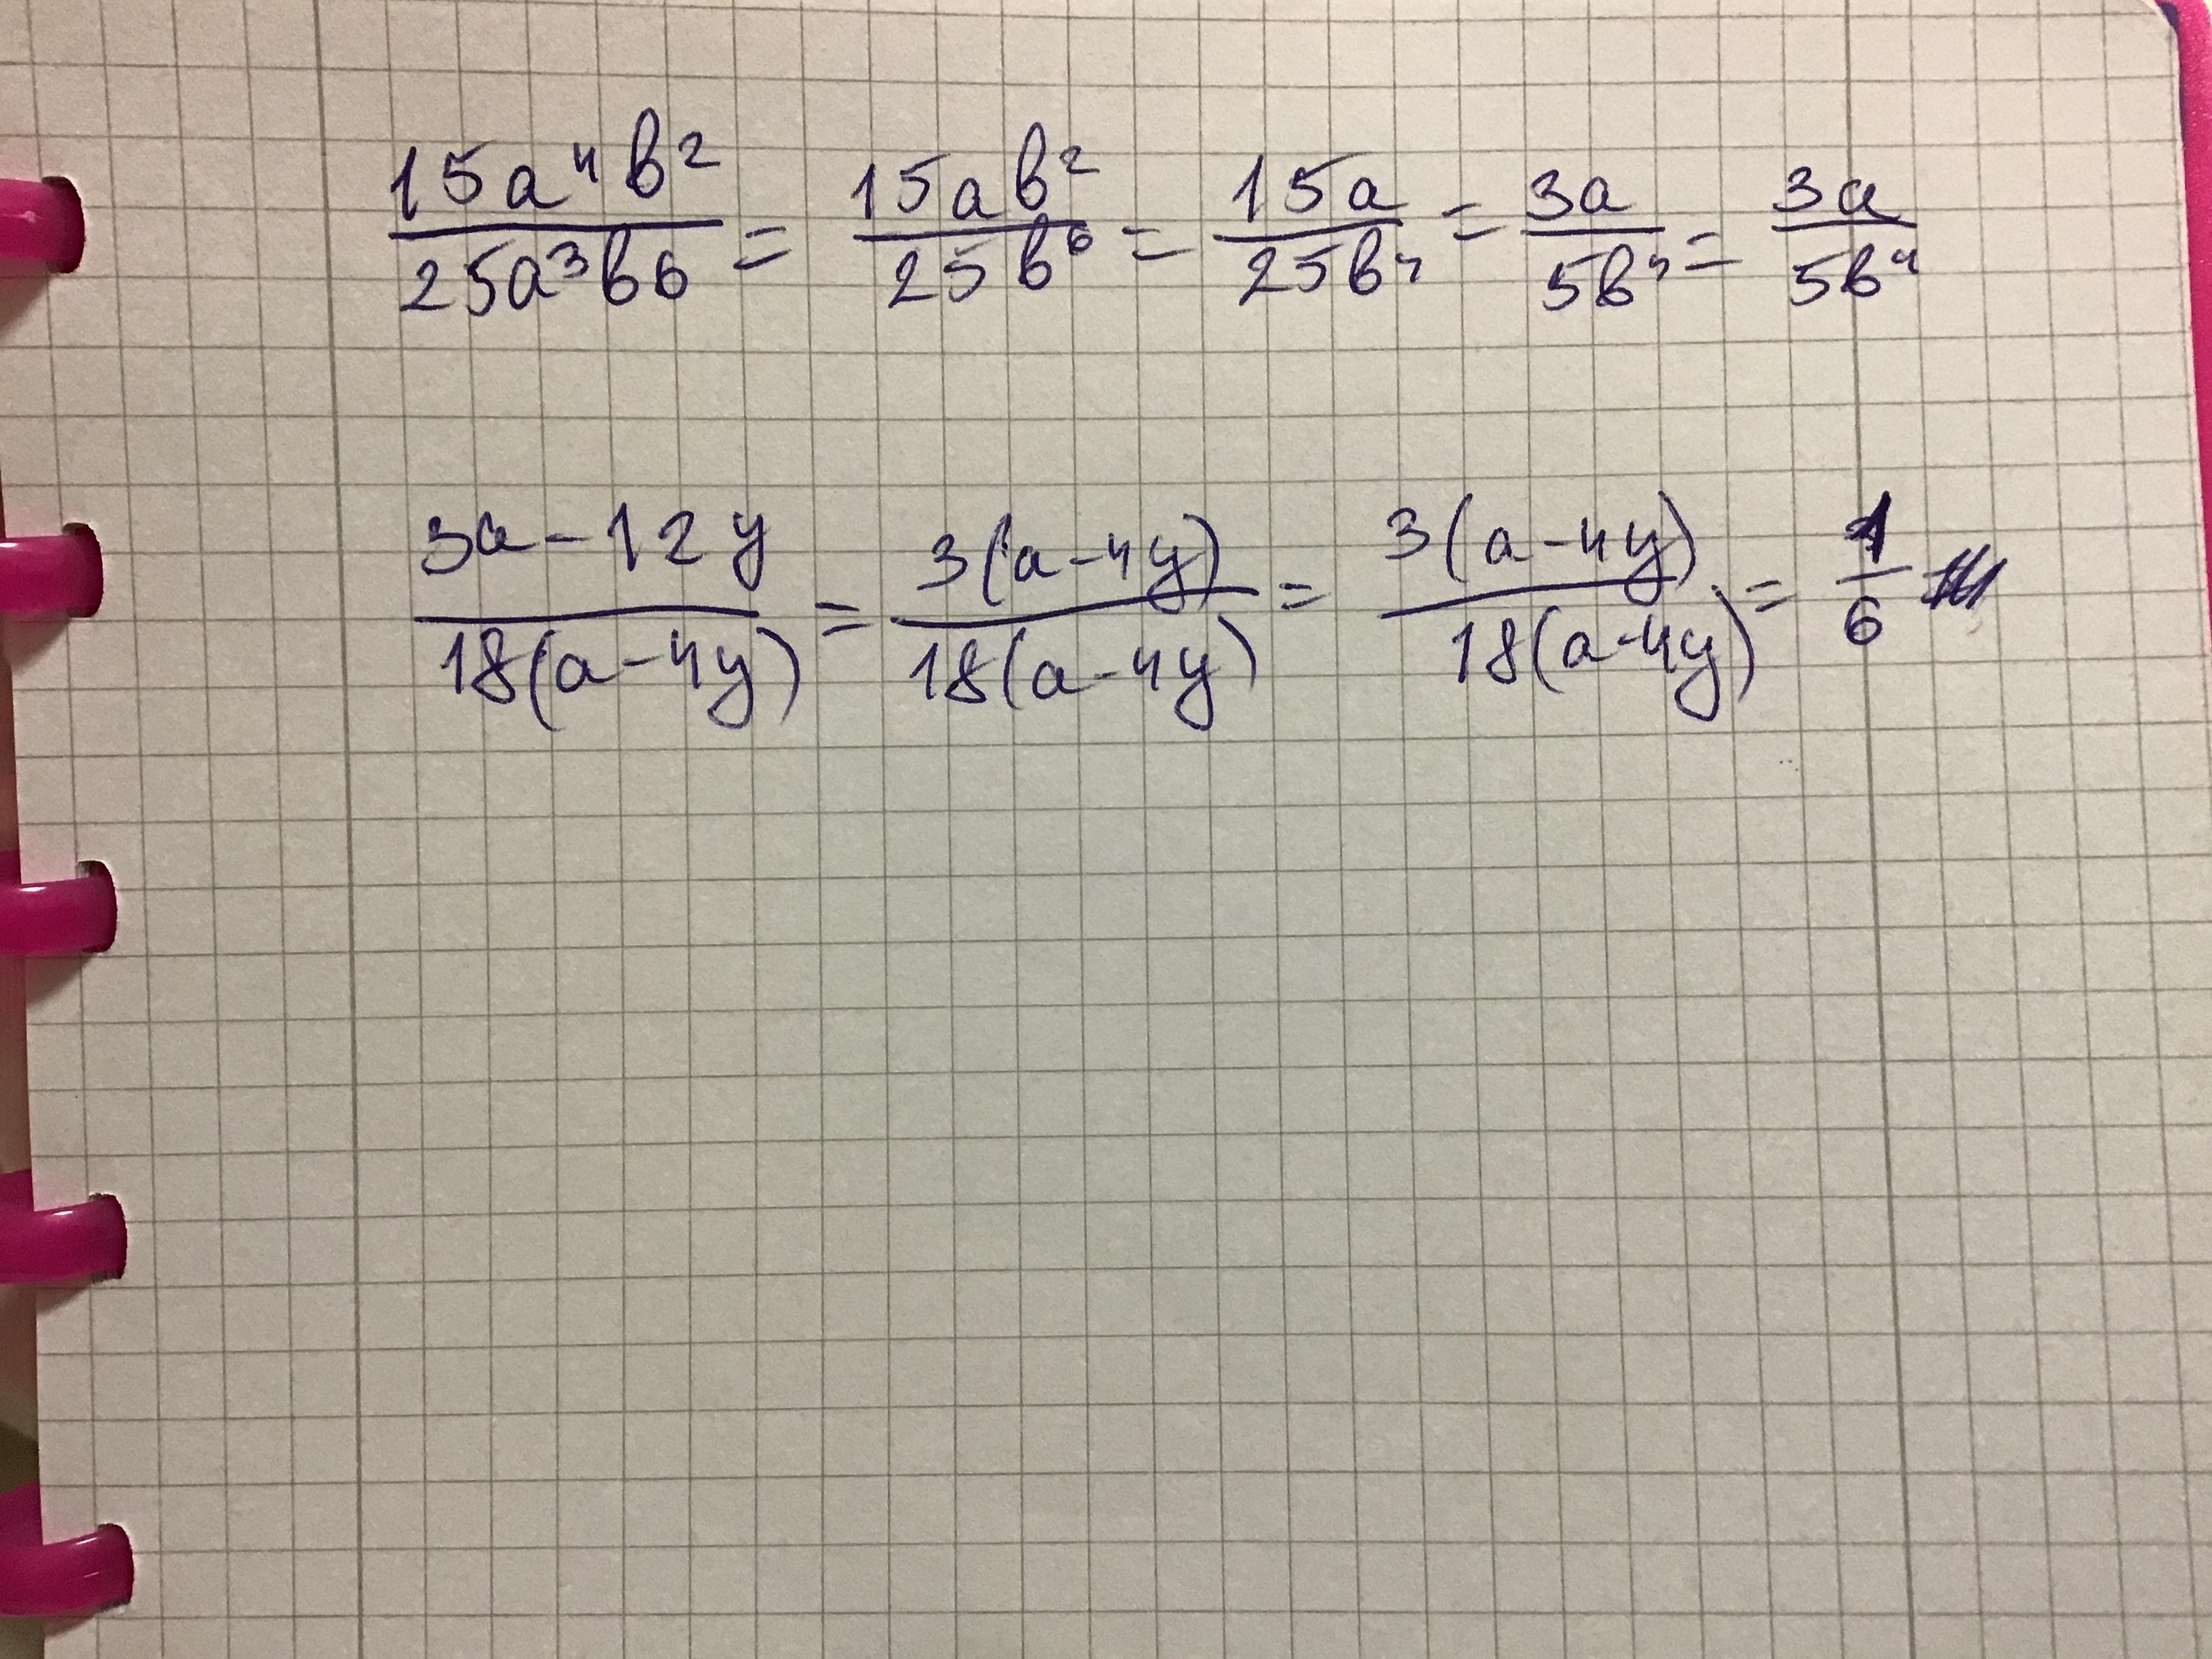 15a⁴b²/25a³b6 = 15ab²/25b⁶ = 15a/25b⁴ = 3a/5b⁴ = 3a/5b⁴
3a-12y/18(a-4y) = 3(a-4y)/18(a-4y) = 3(a-4y)/18(a-4y) = 1/6